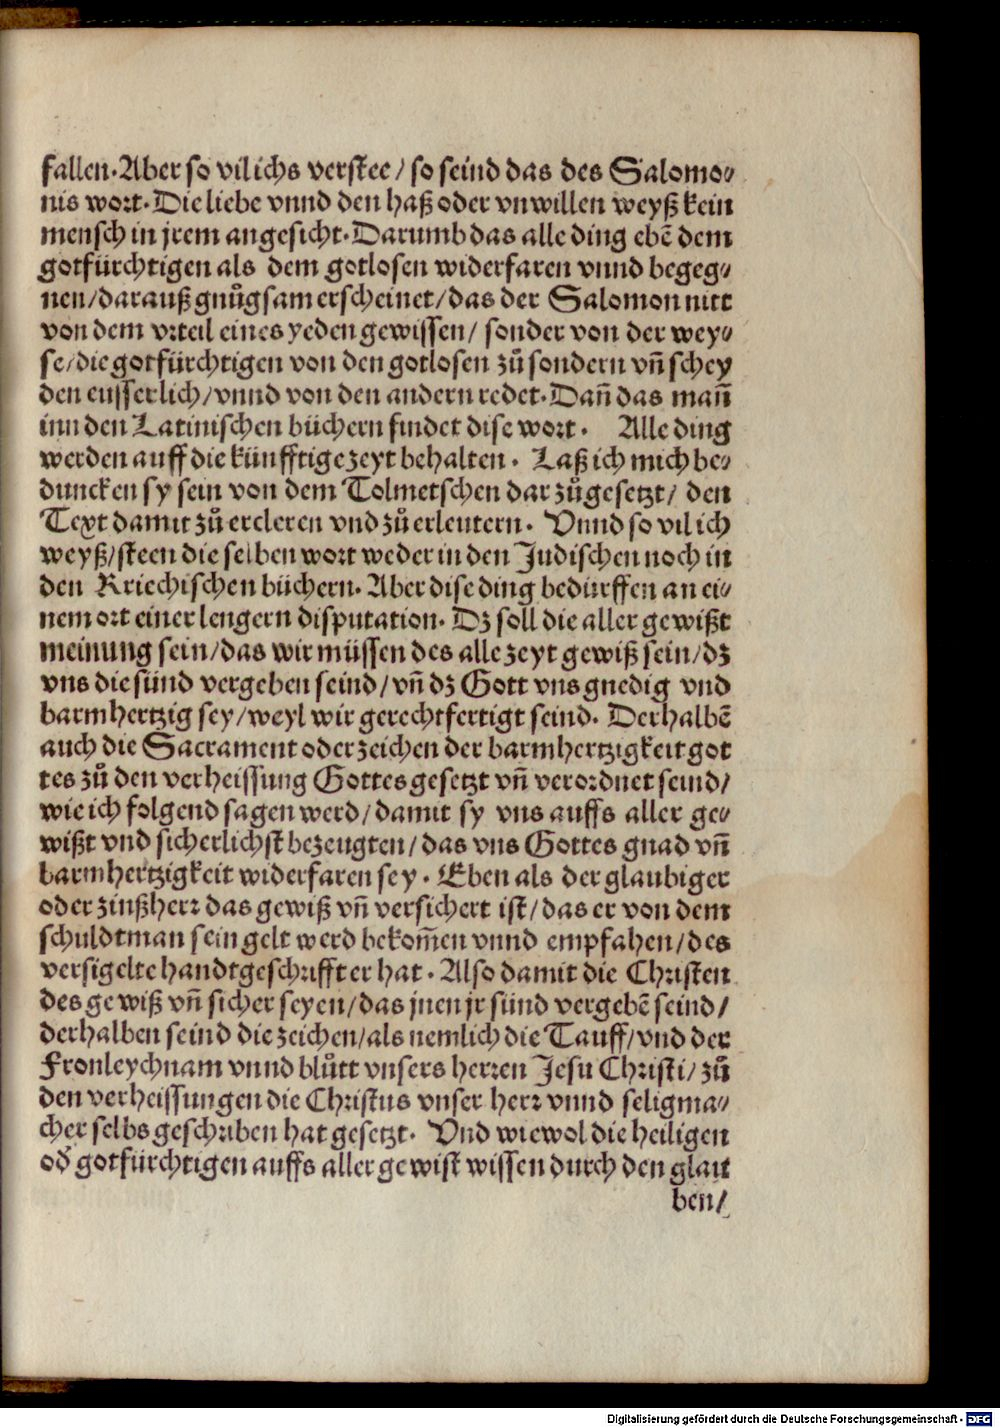 fallen. Aber so vil ichs verstee / so seind das des Salomo⸗
nis wort. Die liebe vnnd den haß oder vnwillen weyß kein
mensch in jrem angesicht. Darumb das alle ding ebẽ dem
gotfürchtigen als dem gotlosen widerfaren vnnd begeg⸗
nen / darauß gnůgsam erscheinet / das der Salomon nitt
von dem vrteil eines yeden gewissen / sonder von der wey⸗
se / die gotfürchtigen von den gotlosen zů sondern vñ schey
den eusserlich / vnnd von den andern redet. Dañ das mañ
inn den Latinischen büchern findet dise wort. Alle ding
werden auff die künfftige zeyt behalten. Laß ich mich be⸗
duncken sy sein von dem Tolmetschen dar zůgesetzt / den
Text damit zů ercleren vnd zů erleutern. Vnnd so vil ich
weyß / steen die selben wort weder in den Judischen noch in
den Kriechischen büchern. Aber dise ding bedürffen an ei⸗
nem ort einer lengern disputation. Dz soll die aller gewißt
meinung sein / das wir müssen des alle zeyt gewiß sein / dz
vns die sünd vergeben seind / vñ dz Gott vns gnedig vnd
barmhertzig sey / weyl wir gerechtfertigt seind. Derhalbẽ
auch die Sacrament oder zeichen der barmhertzigkeit got
tes zů den verheissung Gottes gesetzt vñ verordnet seind /
wie ich folgend sagen werd / damit sy vns auffs aller ge⸗
wißt vnd sicherlichst bezeugten / das vns Gottes gnad vñ
barmhertzigkeit widerfaren sey. Eben als der glaubiger
oder zinßherr das gewiß vñ versichert ist / das er von dem
schuldtman sein gelt werd bekom̃en vnnd empfahen / des
versigelte handtgeschrifft er hat. Also damit die Christen
des gewiß vñ sicher seyen / das jnen jr sünd vergebẽ seind /
derhalben seind die zeichen / als nemlich die Tauff / vnd der
Fronleychnam vnnd blůtt vnsers herren Jesu Christi / zů
den verheissungen die Christus vnser herr vnnd seligma⸗
cher selbs geschriben hat gesetzt. Vnd wiewol die heiligen
od̕ gotfürchtigen auffs aller gewist wissen durch den glau
ben /
Digitalisierung gefördert durch die Deutsche Forschungsgemeinschaft - DFG